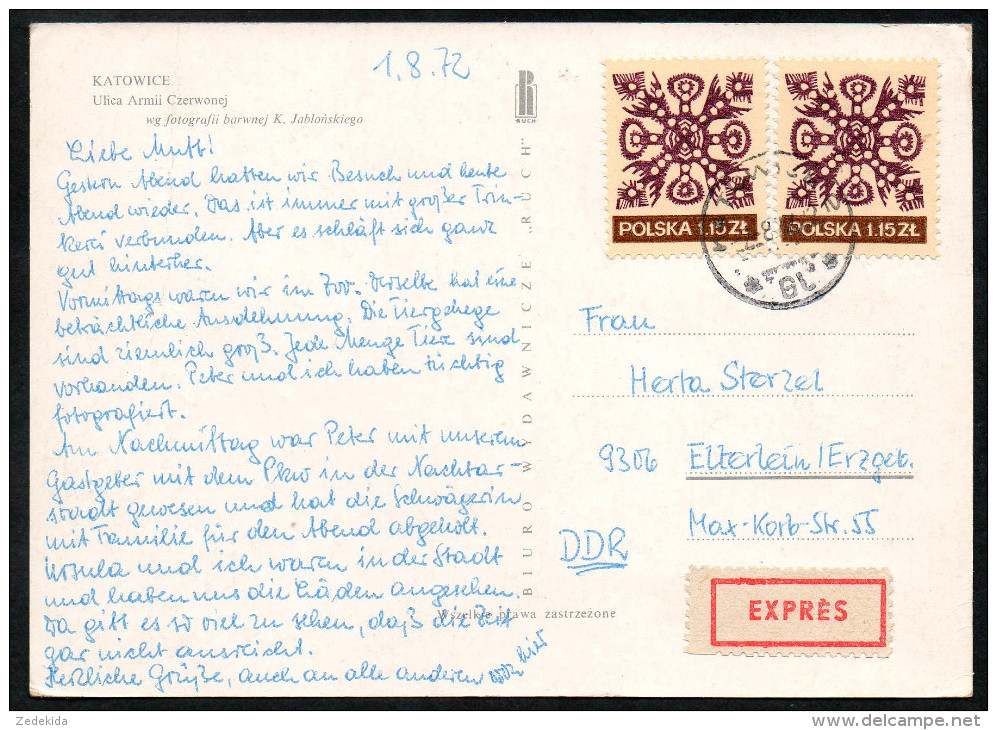 KATOWICE
Ulica Armii Czerwonej
wg fotografii barwnej K. Jabłońskiego
1.8.72
RUCH
Liebe Mutti!
Gestern Abend hatten wir Besuch und heute
Abend wieder. Das ist immer mit großer Trin-
kerei verbunden. Aber es schläft sich ganz
gut hinterher.
Vormittags waren wir im Zoo. Derselbe hat eine
beträchtliche Ausdehnung. Die Tiergehege
sind ziemlich groß. Jede Menge Tiere sind
vorhanden. Peter und ich haben tüchtig
fotografiert.
Am Nachmittag war Peter mit unserem
Gastgeber mit dem Pkw in der Nachbar-
stadt gewesen und hat die Schwägerin
mit Familie für den Abend abgeholt.
Ursula und ich waren in der Stadt
und haben uns die Läden angesehen.
Da gibt es so viel zu sehen, daß die Zeit
gar nicht ausreicht.
Herzliche Grüße, auch an alle anderen
BIURO WYDAWNICZE "RUCH"
Wszelkie prawa zastrzeżone
POLSKA 1.15 ZŁ
POLSKA 1.15 ZŁ
Frau
Herta Sterzel
9306 Elterlein/Erzgeb.
Max-Korb-Str. 55
DDR
EXPRÈS
Zedekida
delcampe.net